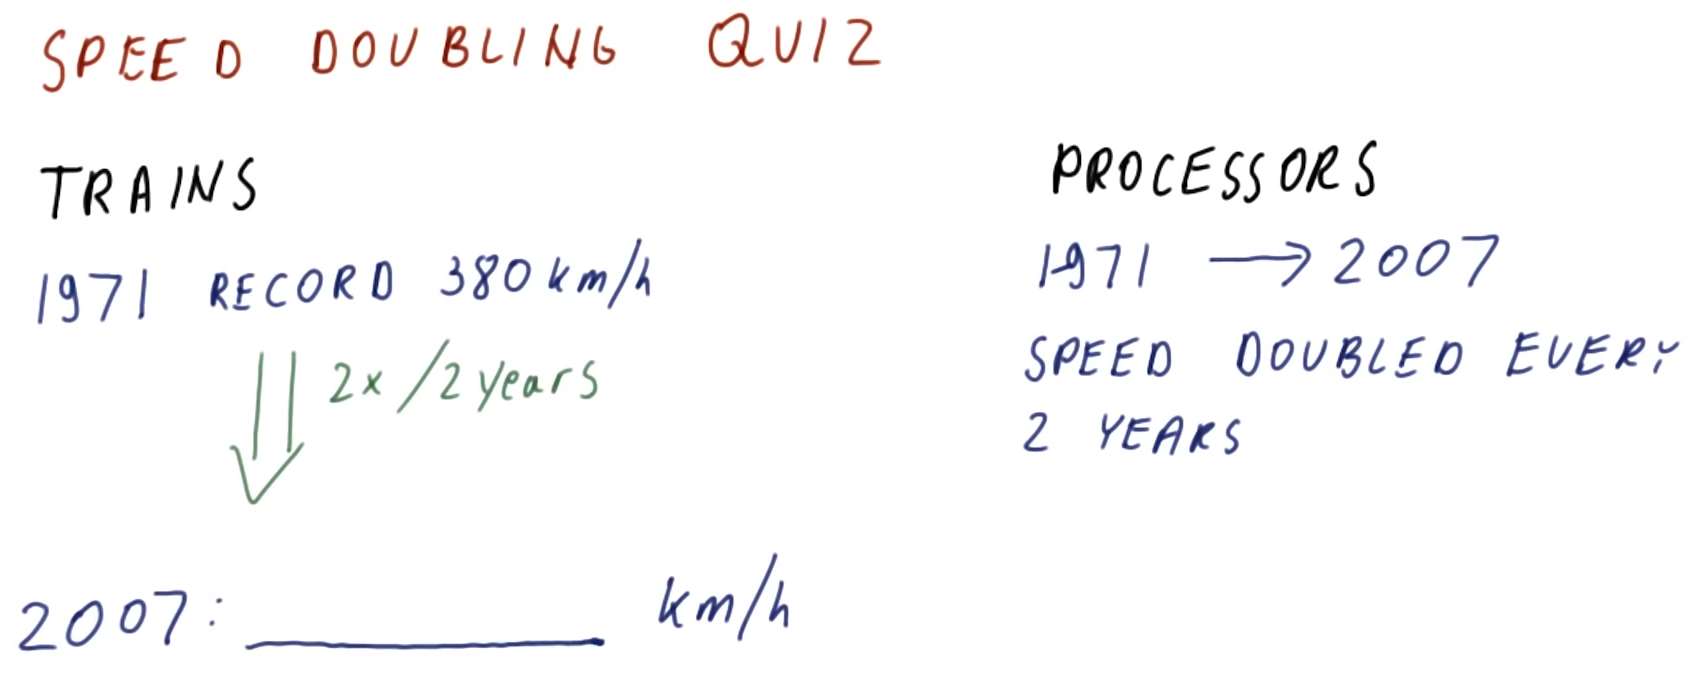 SPEED DOUBLING QUIZ
TRAINS
1971 RECORD 380 km/h
2x /2 years
2007: ________ km/h
PROCESSORS
1971 → 2007
SPEED DOUBLED EVERY
2 YEARS